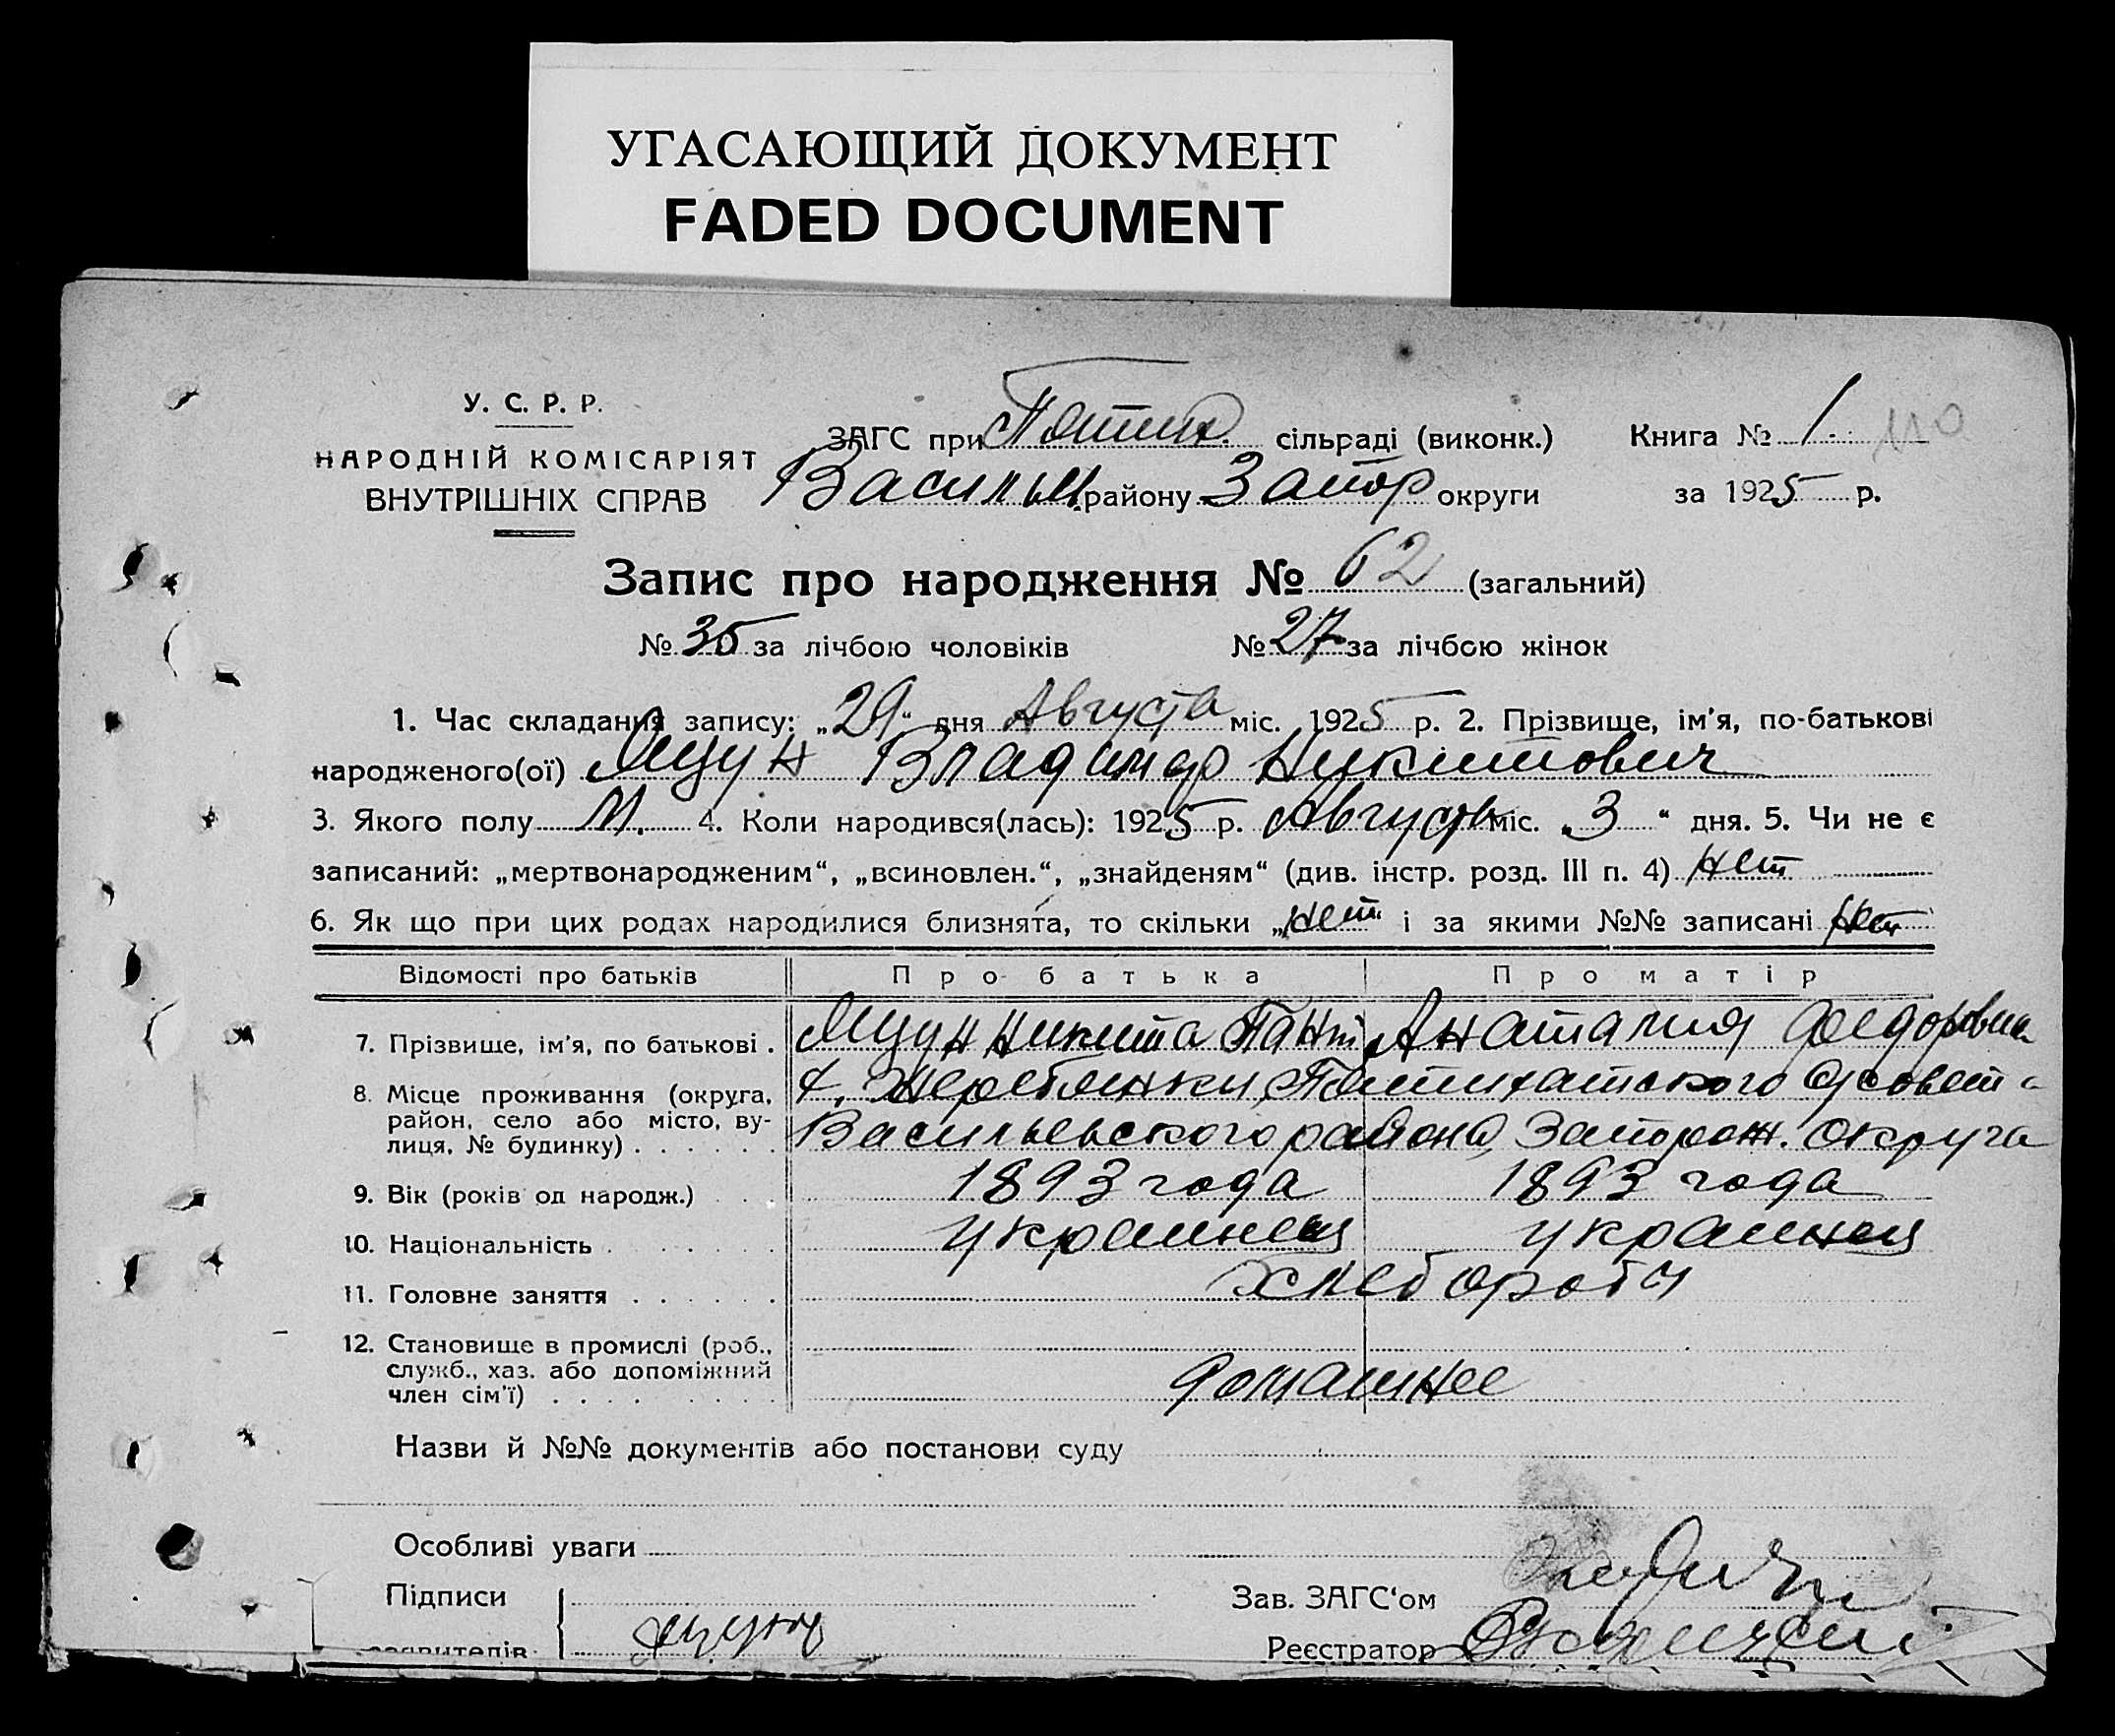 УГАСАЮЩИЙ ДОКУМЕНТ
FADED DOCUMENT
У. С. Р. Р.
НАРОДНІЙ КОМІСАРІЯТ
ВНУТРІШНІХ СПРАВ
ЗАГС при Пятих. сільраді (виконк.) Книга № 1. 110
Васильев. району Запор округи за 1925 р.
Запис про народження № 62 (загальний)
№ 35 за лічбою чоловіків № 27 за лічбою жінок
1. Час складання запису: „29“ дня Августа міс. 1925 р. 2. Прізвище, ім'я, по-батькові
народженого(ої) Яцун Владимир Никитович
3. Якого полу М. 4. Коли народився(лась): 1925 р. Августа міс. „3“ дня. 5. Чи не є
записаний: „мертвонародженим“, „всиновлен.“, „знайденям“ (див. інстр. розд. III п. 4) нет
6. Як що при цих родах народилися близнята, то скільки „нет“ і за якими №№ записані нет
Відомості про батьків Про батька Про матір
7. Прізвище, ім'я, по батькові . Яцун Никита Пант Анаталия Федоровна
8. Місце проживання (округа, Жеребянки, Пятихатского
район, село або місто, ву- Васильевского района, Запорож. Округа
лиця, № будинку) . . . . . .
9. Вік (років од народж.) . . . 1893 года 1893 года
10. Національність . . . . . . украинец украинец
11. Головне заняття . . . . . . хлеборобы
12. Становище в промислі (роб.,
служб., хаз. або допоміжний домашнее
член сім'ї) . . . . . . . .
Назви й №№ документів або постанови суду
Особливі уваги
Підписи Зав. ЗАГС'ом
заявителів Яцун Реєстратор